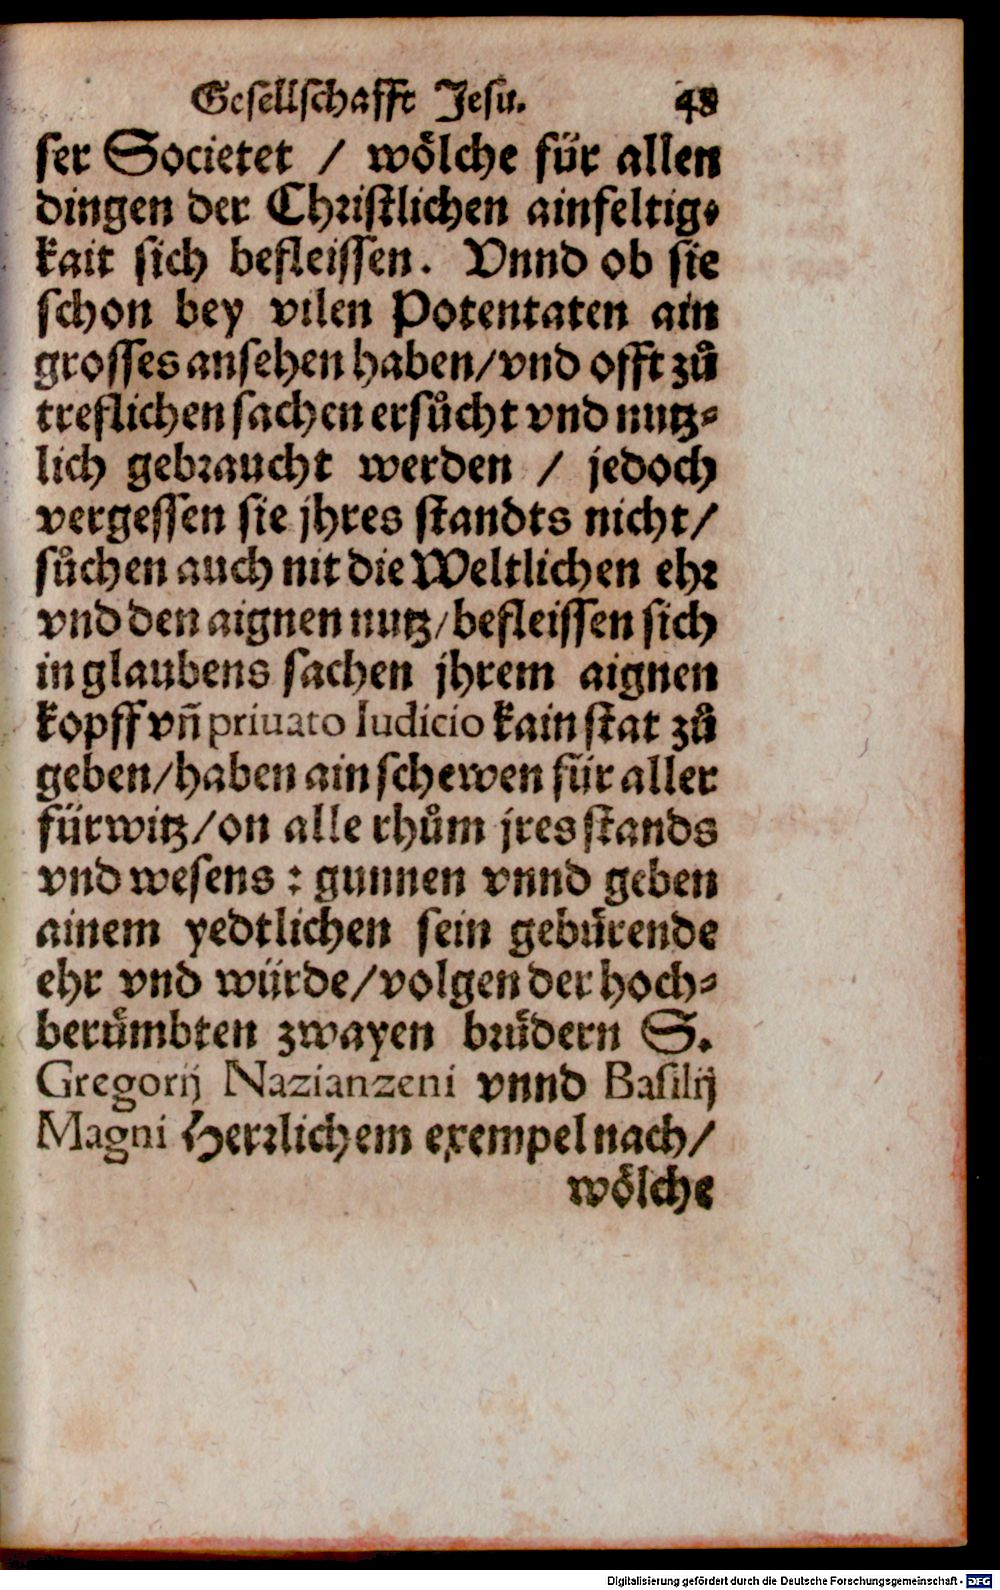 Gesellschafft Jesu. 48
ser Societet / woͤlche für allen
dingen der Christlichen ainfeltig-
kait sich befleissen. Vnnd ob sie
schon bey vilen Potentaten ain
grosses ansehen haben/vnd offt zů
treflichen sachen ersůcht vnd nutz-
lich gebraucht werden / jedoch
vergessen sie jhres standts nicht/
sůchen auch nit die Weltlichen ehr
vnd den aignen nutz/befleissen sich
in glaubens sachen jhrem aignen
kopff vñ priuato Iudicio kain stat zů
geben/haben ain schewen für aller
fürwitz/on alle rhům jres stands
vnd wesens : gunnen vnnd geben
ainem yedtlichen sein gebürende
ehr vnd würde/volgen der hoch-
berümbten zwayen brüdern S.
Gregorij Nazianzeni vnnd Basilij
Magni Herrlichem exempel nach/
woͤlche
Digitalisierung gefördert durch die Deutsche Forschungsgemeinschaft - DFG